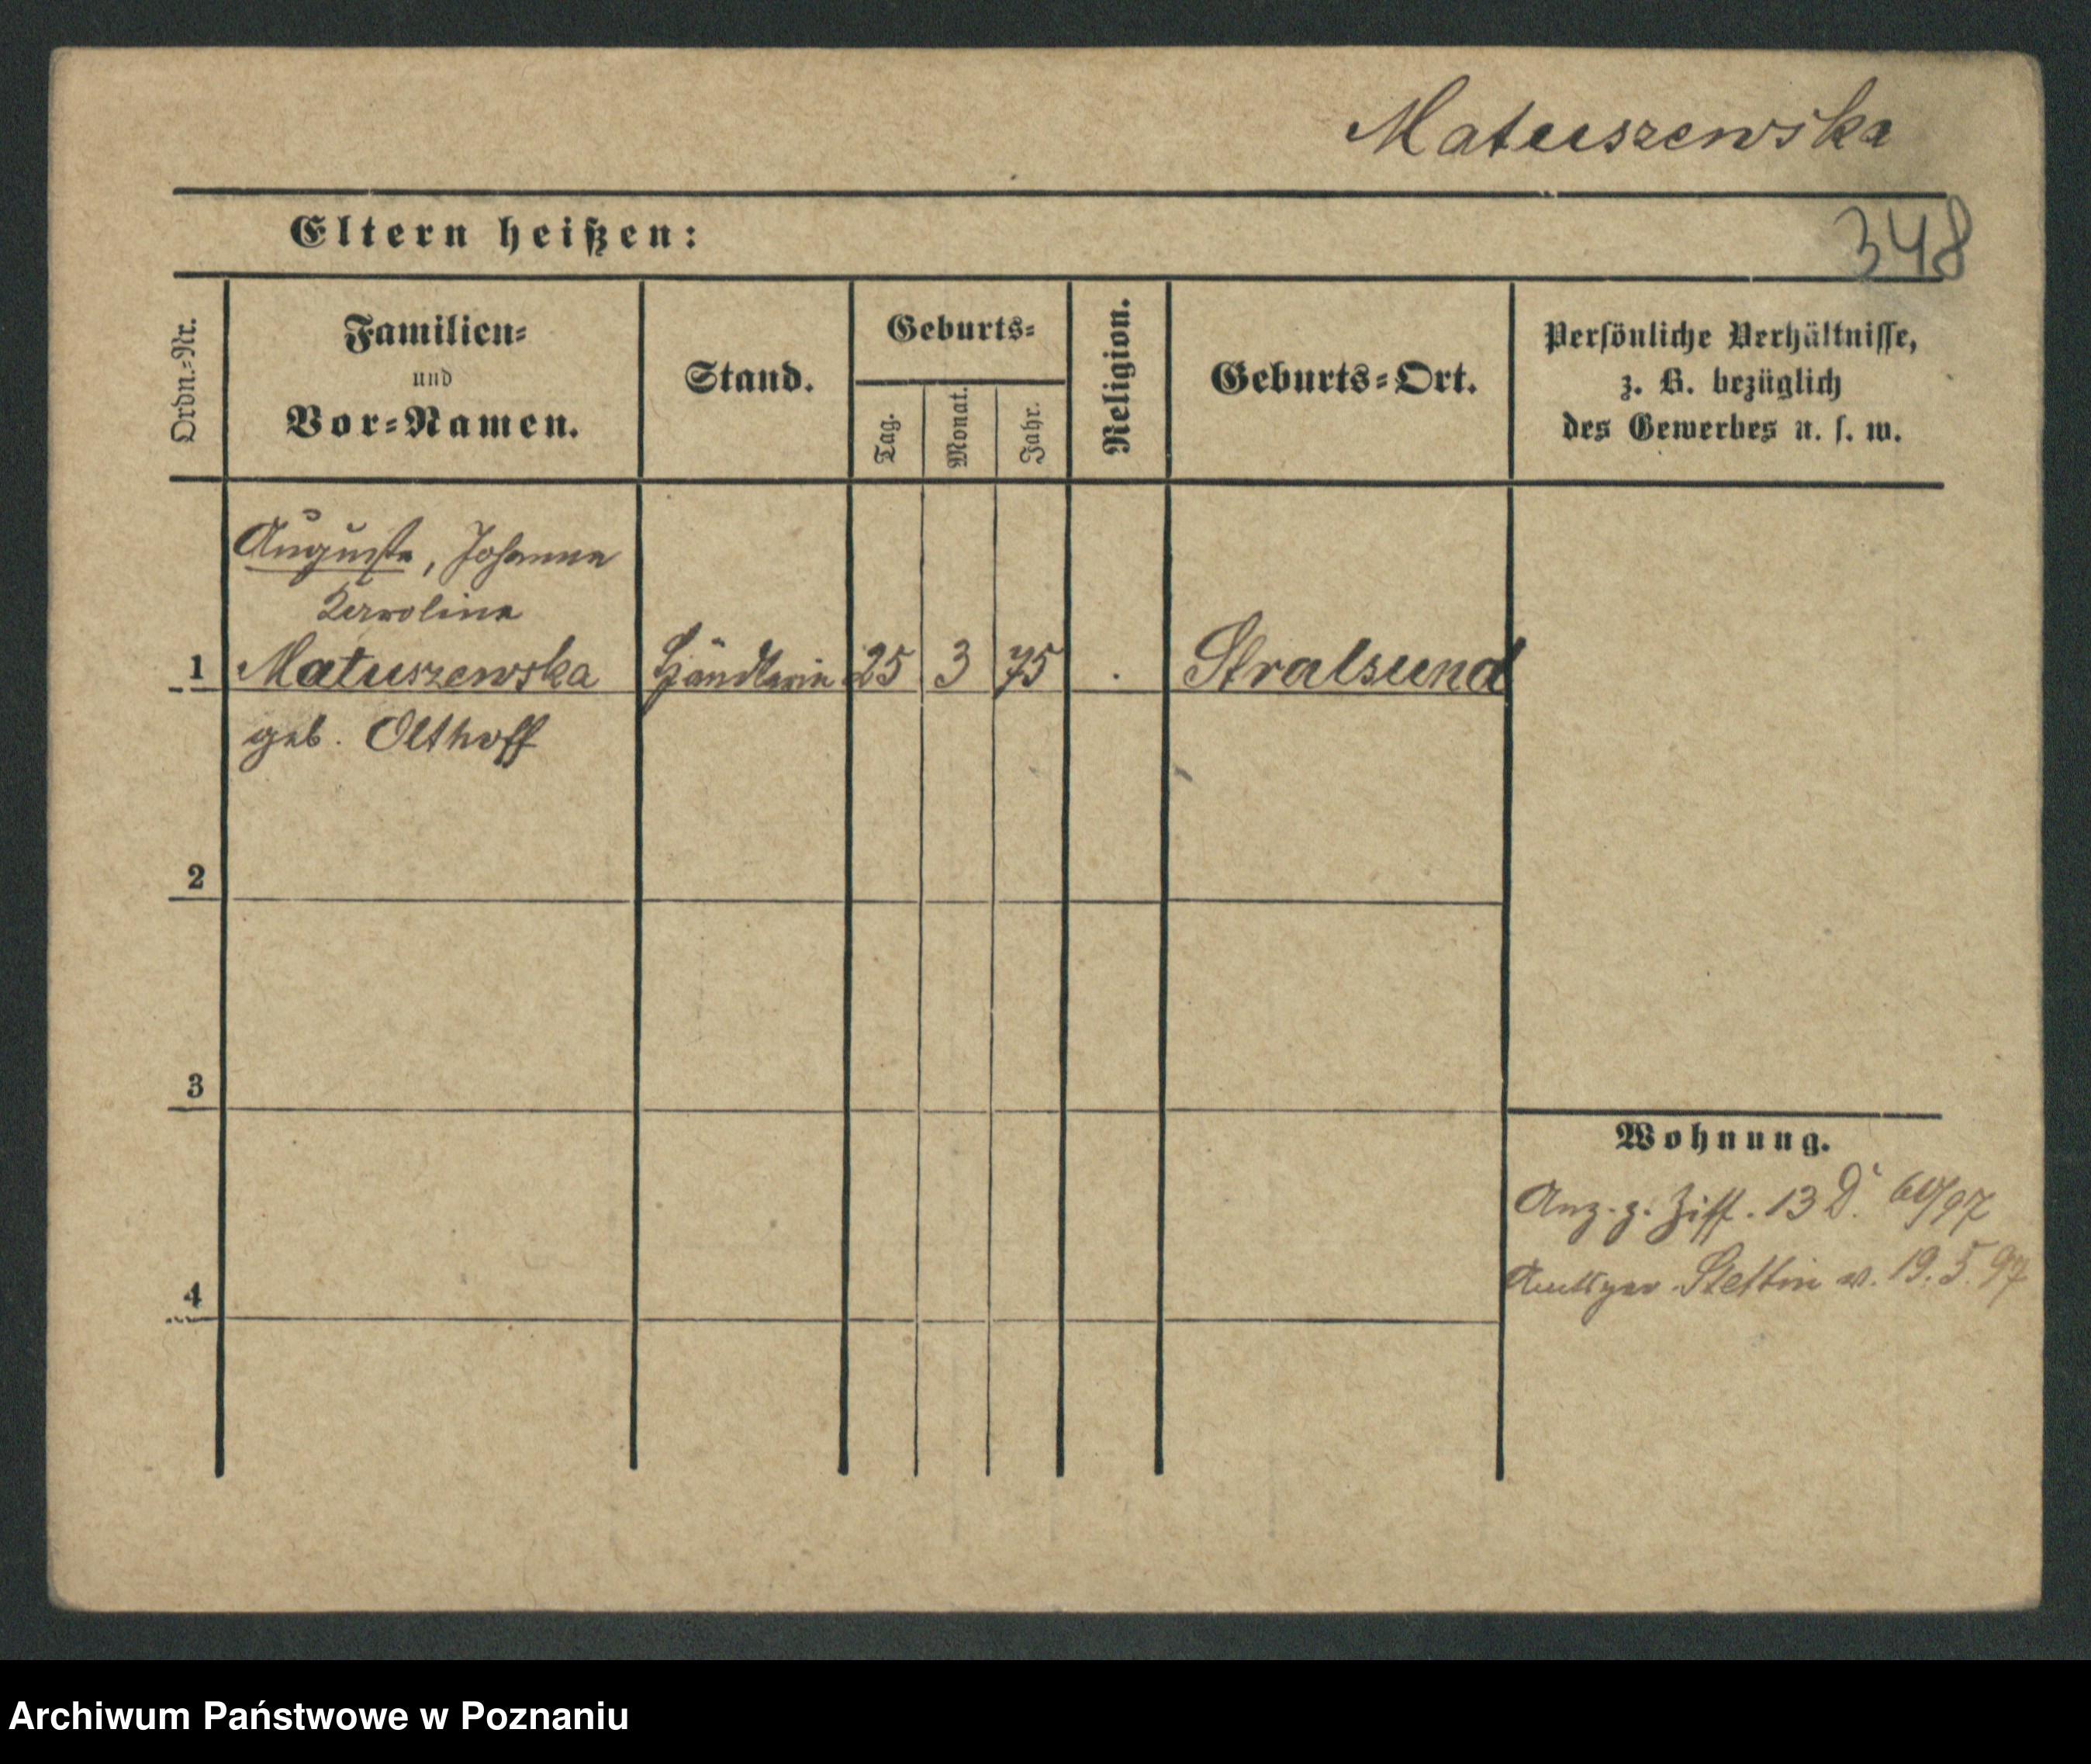 Matuszewska
348
Eltern heißen:
Ordn.-Nr.
Familien-
und
Vor-Namen.
Stand.
Geburts-
Tag.
Monat.
Jahr.
Religion.
Geburts-Ort.
Persönliche Verhältnisse,
z. B. bezüglich
des Gewerbes u. s. w.
Auguste, Johanna
Karoline
1 Matuszewska Händlerin 25 3 75 Stralsund
geb. Olthoff
2
3
4
Wohnung.
Anz. z. Ziff. 13 D.
Stettin v. 19. 5. 97
Archiwum Państwowe w Poznaniu